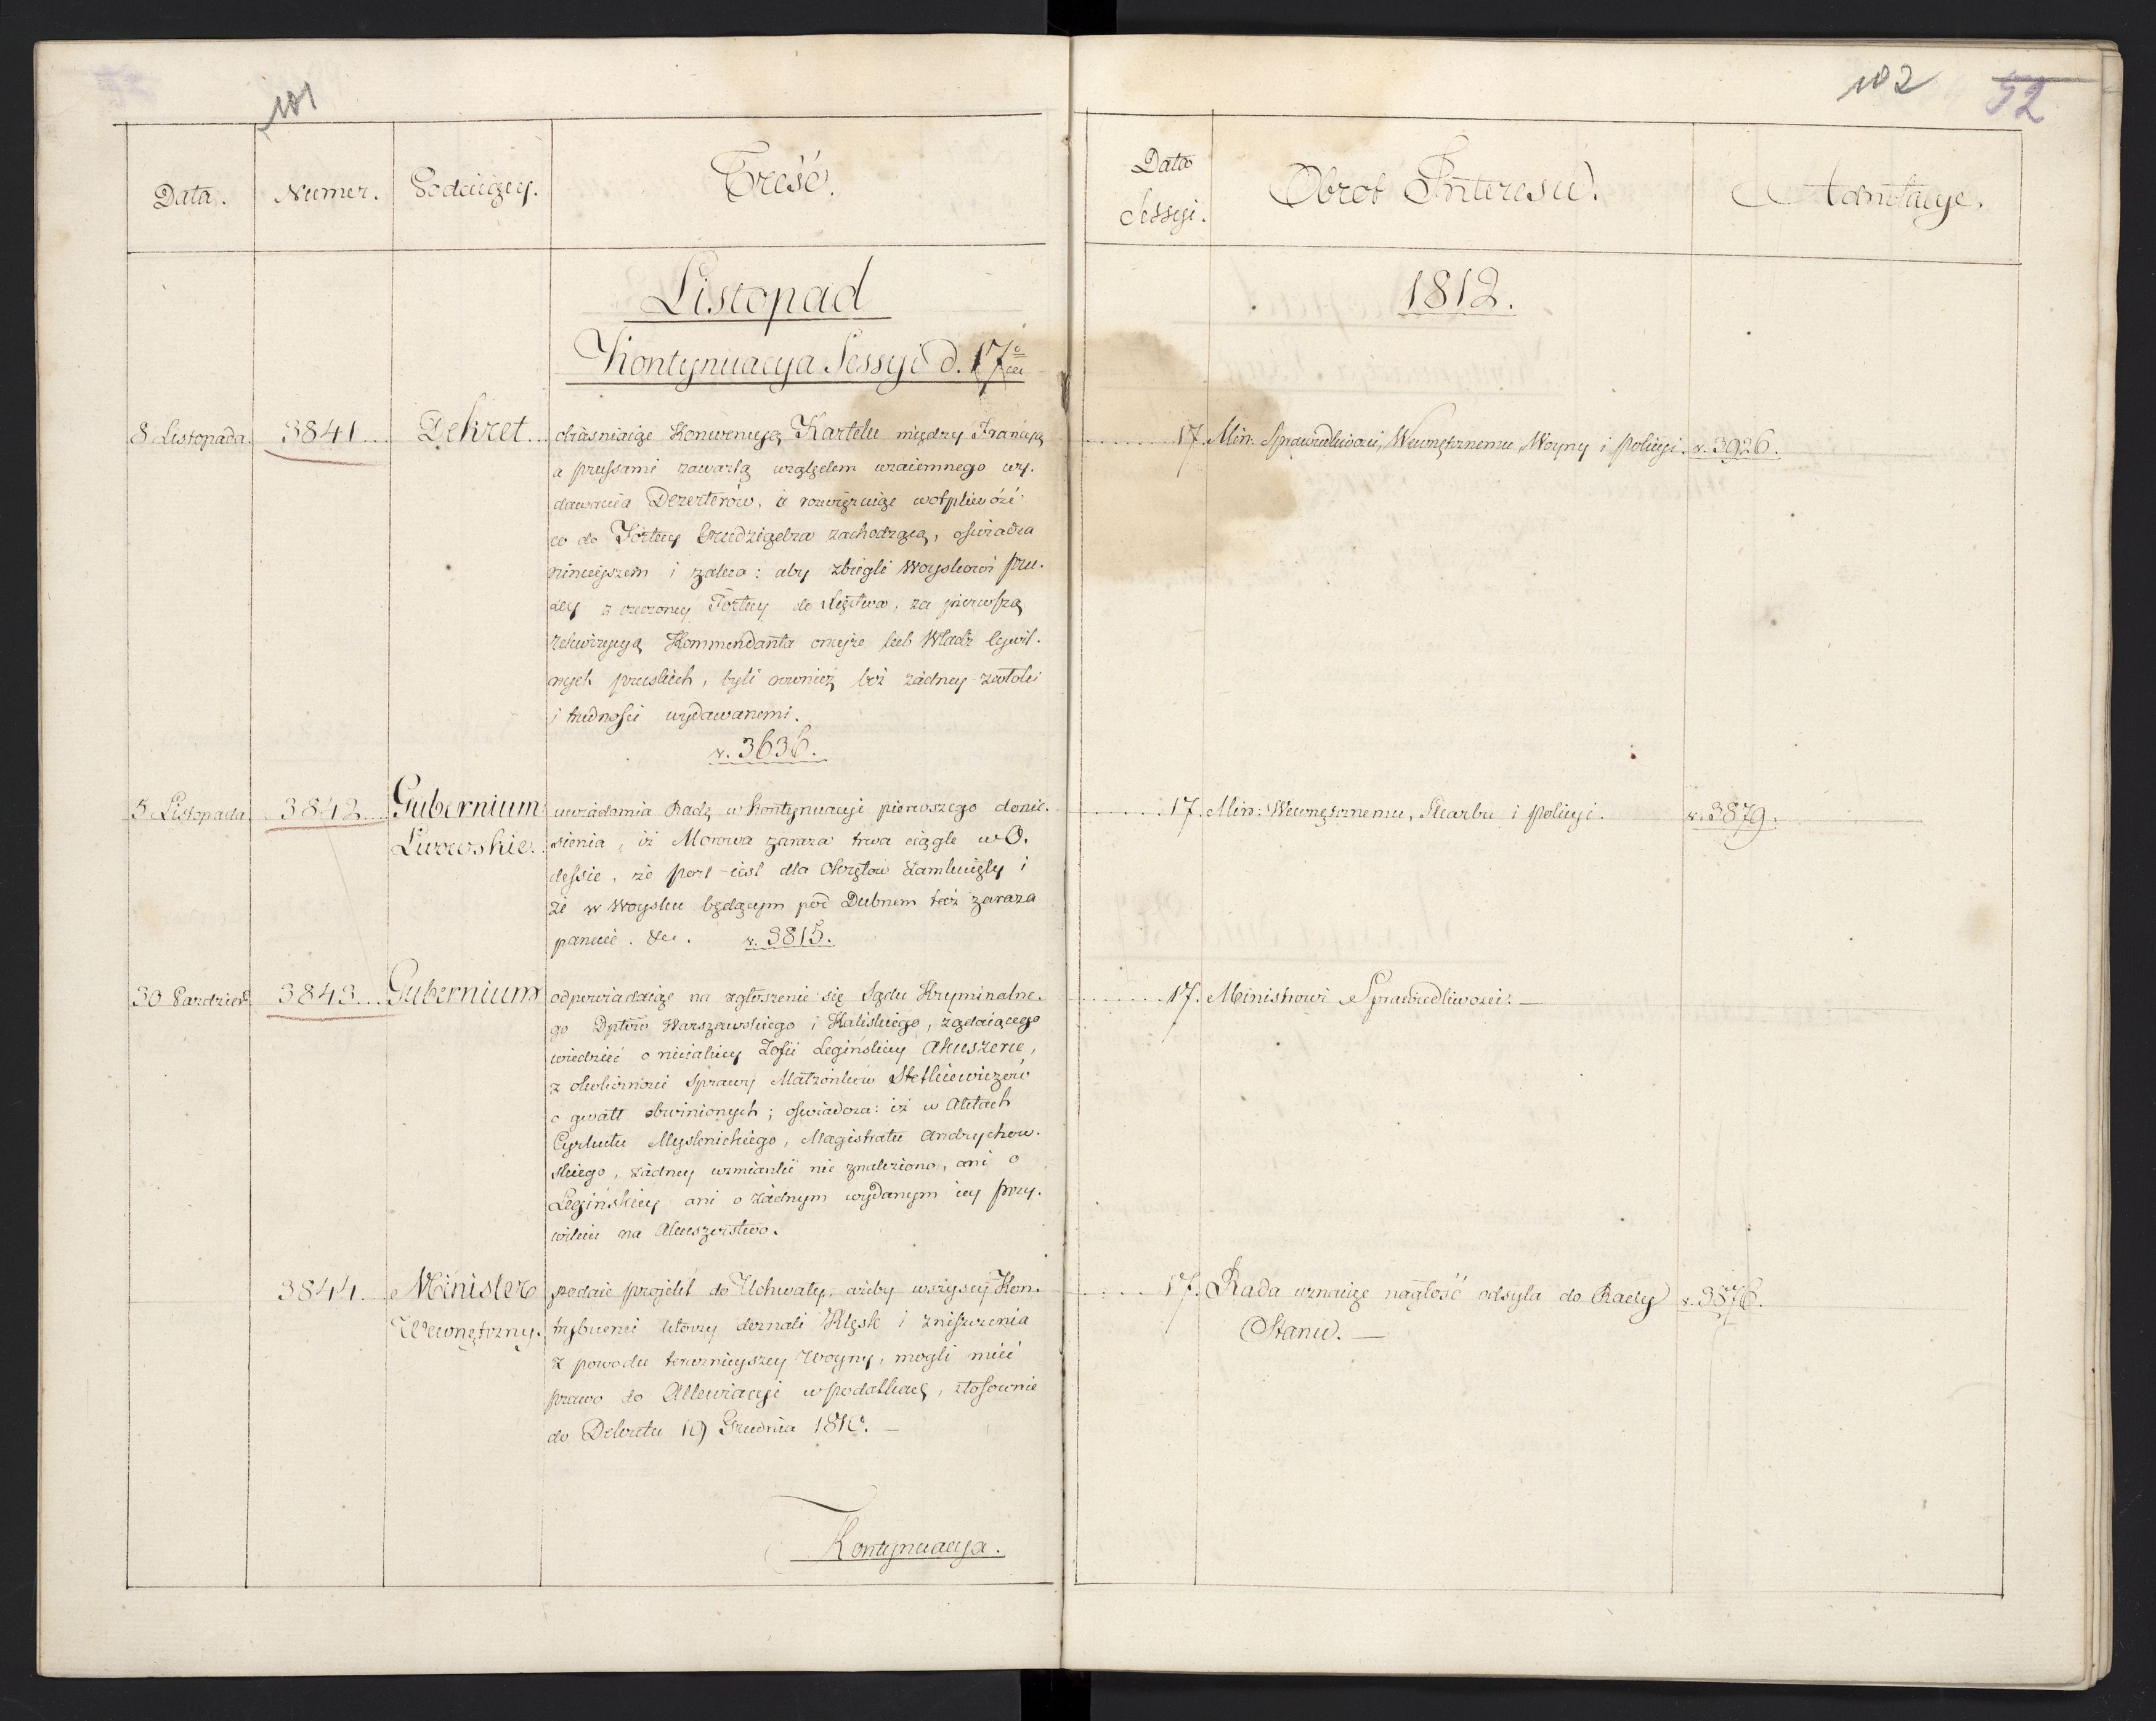 101
Data. Numer. Podaiący. Treść.
Listopad
Kontynuacya Sessyi d. 17
8 Listopada. 3841 Dekret obiasniaiąc Konwencyą Kartelu między Francyą
a prussami zawartą względem wzaiemnego wy.
dawania Dezerterów, i rozwięzuiąc wątpliwość
co do Fortecy Grudziądza zachodzącą, oswiadcza
ninieyszem i zaleca: aby zbiegli Woyskowi pru.
scy z rzeczoney Fortecy do Xięstwa, za pierwszą
rekwizycyą Kommendanta oneyże lub Władz Cywil.
nych pruskich, byli rownież bez żadney zwłoki
i trudności wydawanemi.
v. 3636.
5 Listopada 3842 Gubernium uwiadamia Radę w kontynuacyi pierwszego donie.
Lwowskie. sienia, iż Morowa zaraza trwa ciągle w O.
dessie, że port iest dla Okrętów zamknięty i
że w Woysku będącym pod Dubnem też zaraza
panuie. &c. v. 3815.
30 Pazdzier. 3843 Gubernium odpowiadaiąc na zgłoszenie się Sądu Kryminalne.
go Dptów Warszawskiego i Kaliskiego, żądaiącego
wiedzieć o nieiakiey Zofii Legińskiey Akuszerce,
z okoliczności Sprawy Małżonków Stetkiewiczów
o gwałt obwinionych; oswiadcza: iż w Aktach
Cyrkułu Myslenickiego, Magistratu Andrychow.
skiego, żadney wzmianki nie znaleziono, ani o
Legińskiey ani o żadnym wydanym iey przy.
wileiu na Akuszerstwo.
3844 Minister podaie projekt do Uchwały, ażeby wszyscy Kon.
Wewnętrzny. trybuenci którzy doznali Klęsk i zniszczenia
z powodu teraznieyszey Woyny, mogli mieć
prawo do Allewiacyi w podatkach, stosownie
do Dekretu 19 Grudnia 1810. —
Kontynuacya.
102 52
Data Sessyi. Obrot Interesu. Adnotacye.
1812.
17. Min. Sprawiedliwości, Wewnętrznemu, Woyny i Policyi. v. 3926.
17. Min: Wewnętrznemu, Skarbu i Policyi. v. 3879.
17. Ministrowi Sprawiedliwości. —
17. Rada uznaiąc nagłość odsyła do Rady v. 3876.
Stanu. —